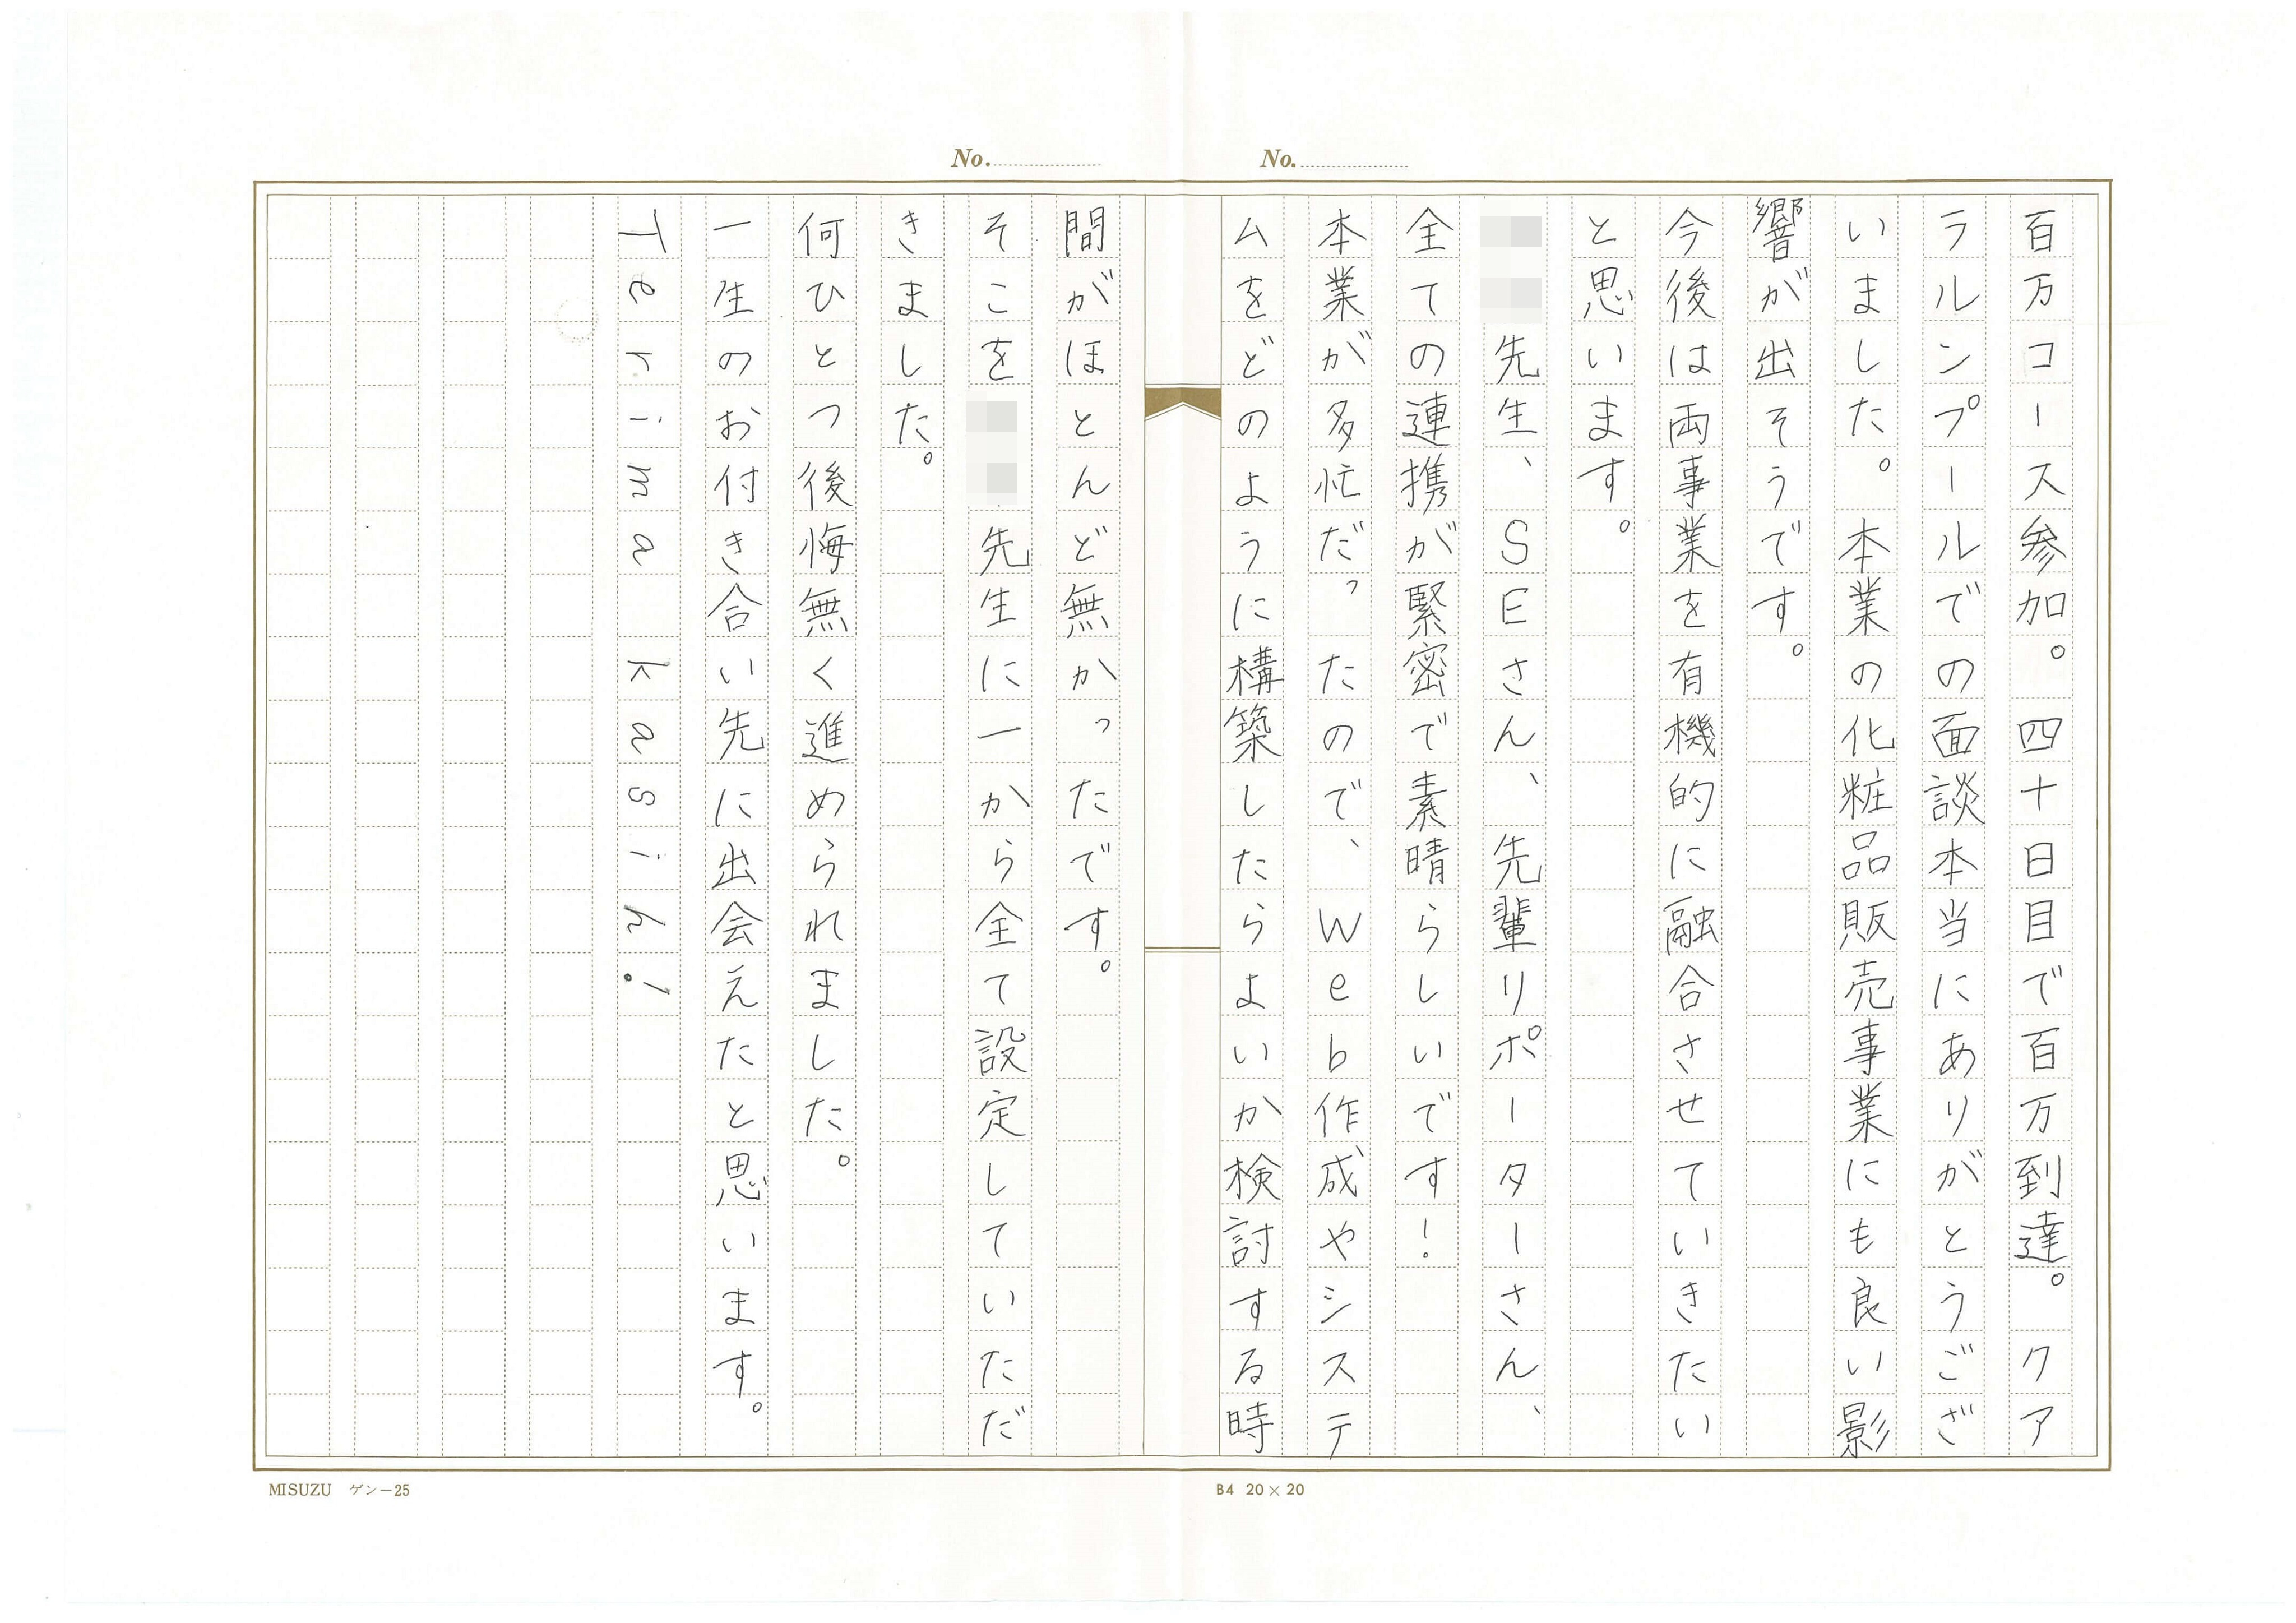 No.
No.
百万コース参加。四十日目で百万到達。クア
ラルンプールでの面談本当にありがとうござ
いました。本業の化粧品販売事業にも良い影
響が出そうです。
今後は両事業を有機的に融合させていきたい
と思います。
先生、SEさん、先輩リポーターさん、
全ての連携が緊密で素晴らしいです!
本業が多忙だったので、Web作成やシステ
ムをどのように構築したらよいか検討する時
間がほとんど無かったです。
そこを先生に一から全て設定していただ
きました。
何ひとつ後悔無く進められました。
一生のお付き合い先に出会えたと思います。
Terima kasih!
MISUZU ゲンー25
B4 20×20